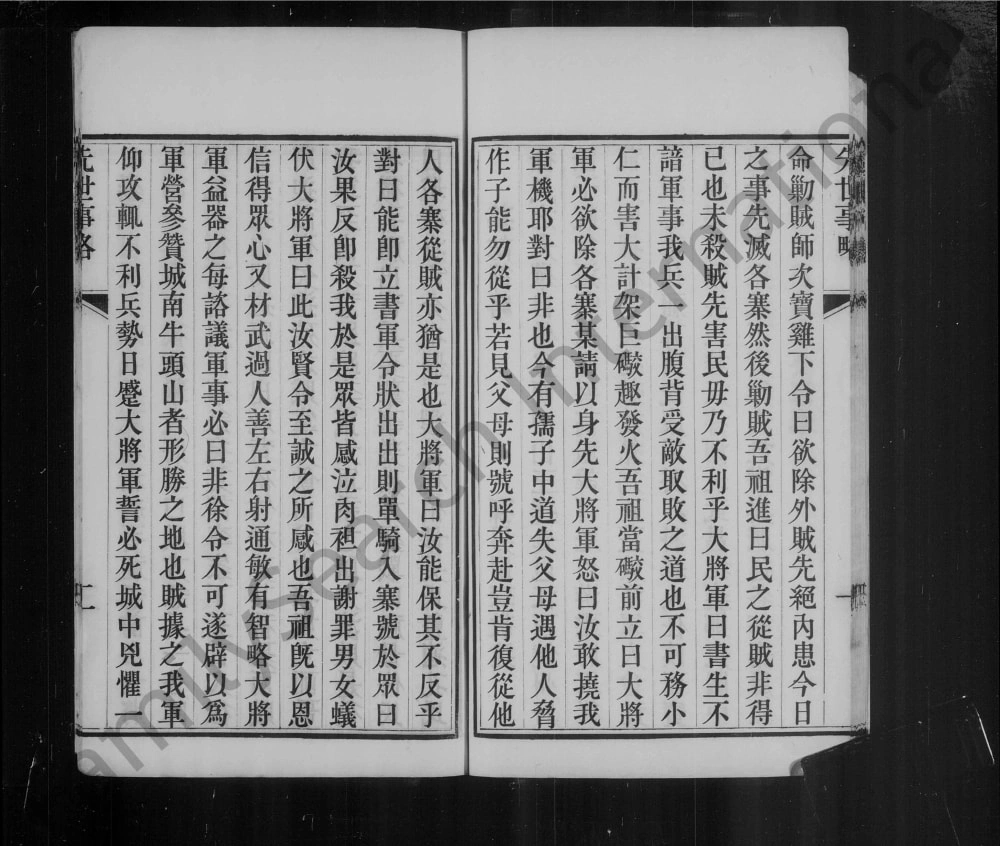 先世事略
命勦賊師次寶雞下令曰欲除外賊先絕內患今日
之事先滅各寨然後勦賊吾祖進曰民之從賊非得
已也未殺賊先害民毋乃不利乎大將軍曰書生不
諳軍事我兵一出腹背受敵取敗之道也不可務小
仁而害大計架巨礮趣發火吾祖當礮前立曰大將
軍必欲除各寨某請以身先大將軍怒曰汝敢撓我
軍機耶對曰非也今有孺子中道失父母遇他人脅
作子能勿從乎若見父母則號呼奔赴豈肯復從他
人各寨從賊亦猶是也大將軍曰汝能保其不反乎
對曰能卽立書軍令狀出出則單騎入寨號於眾曰
汝果反卽殺我於是眾皆感泣肉袒出謝罪男女蟻
伏大將軍曰此汝賢令至誠之所感也吾祖旣以恩
信得眾心又材武過人善左右射通敏有智略大將
軍益器之每諮議軍事必曰非徐令不可遂辟以爲
軍營參贊城南牛頭山者形勝之地也賊據之我軍
仰攻輒不利兵勢日蹙大將軍誓必死城中兇懼一
先世事略
FamilySearch International